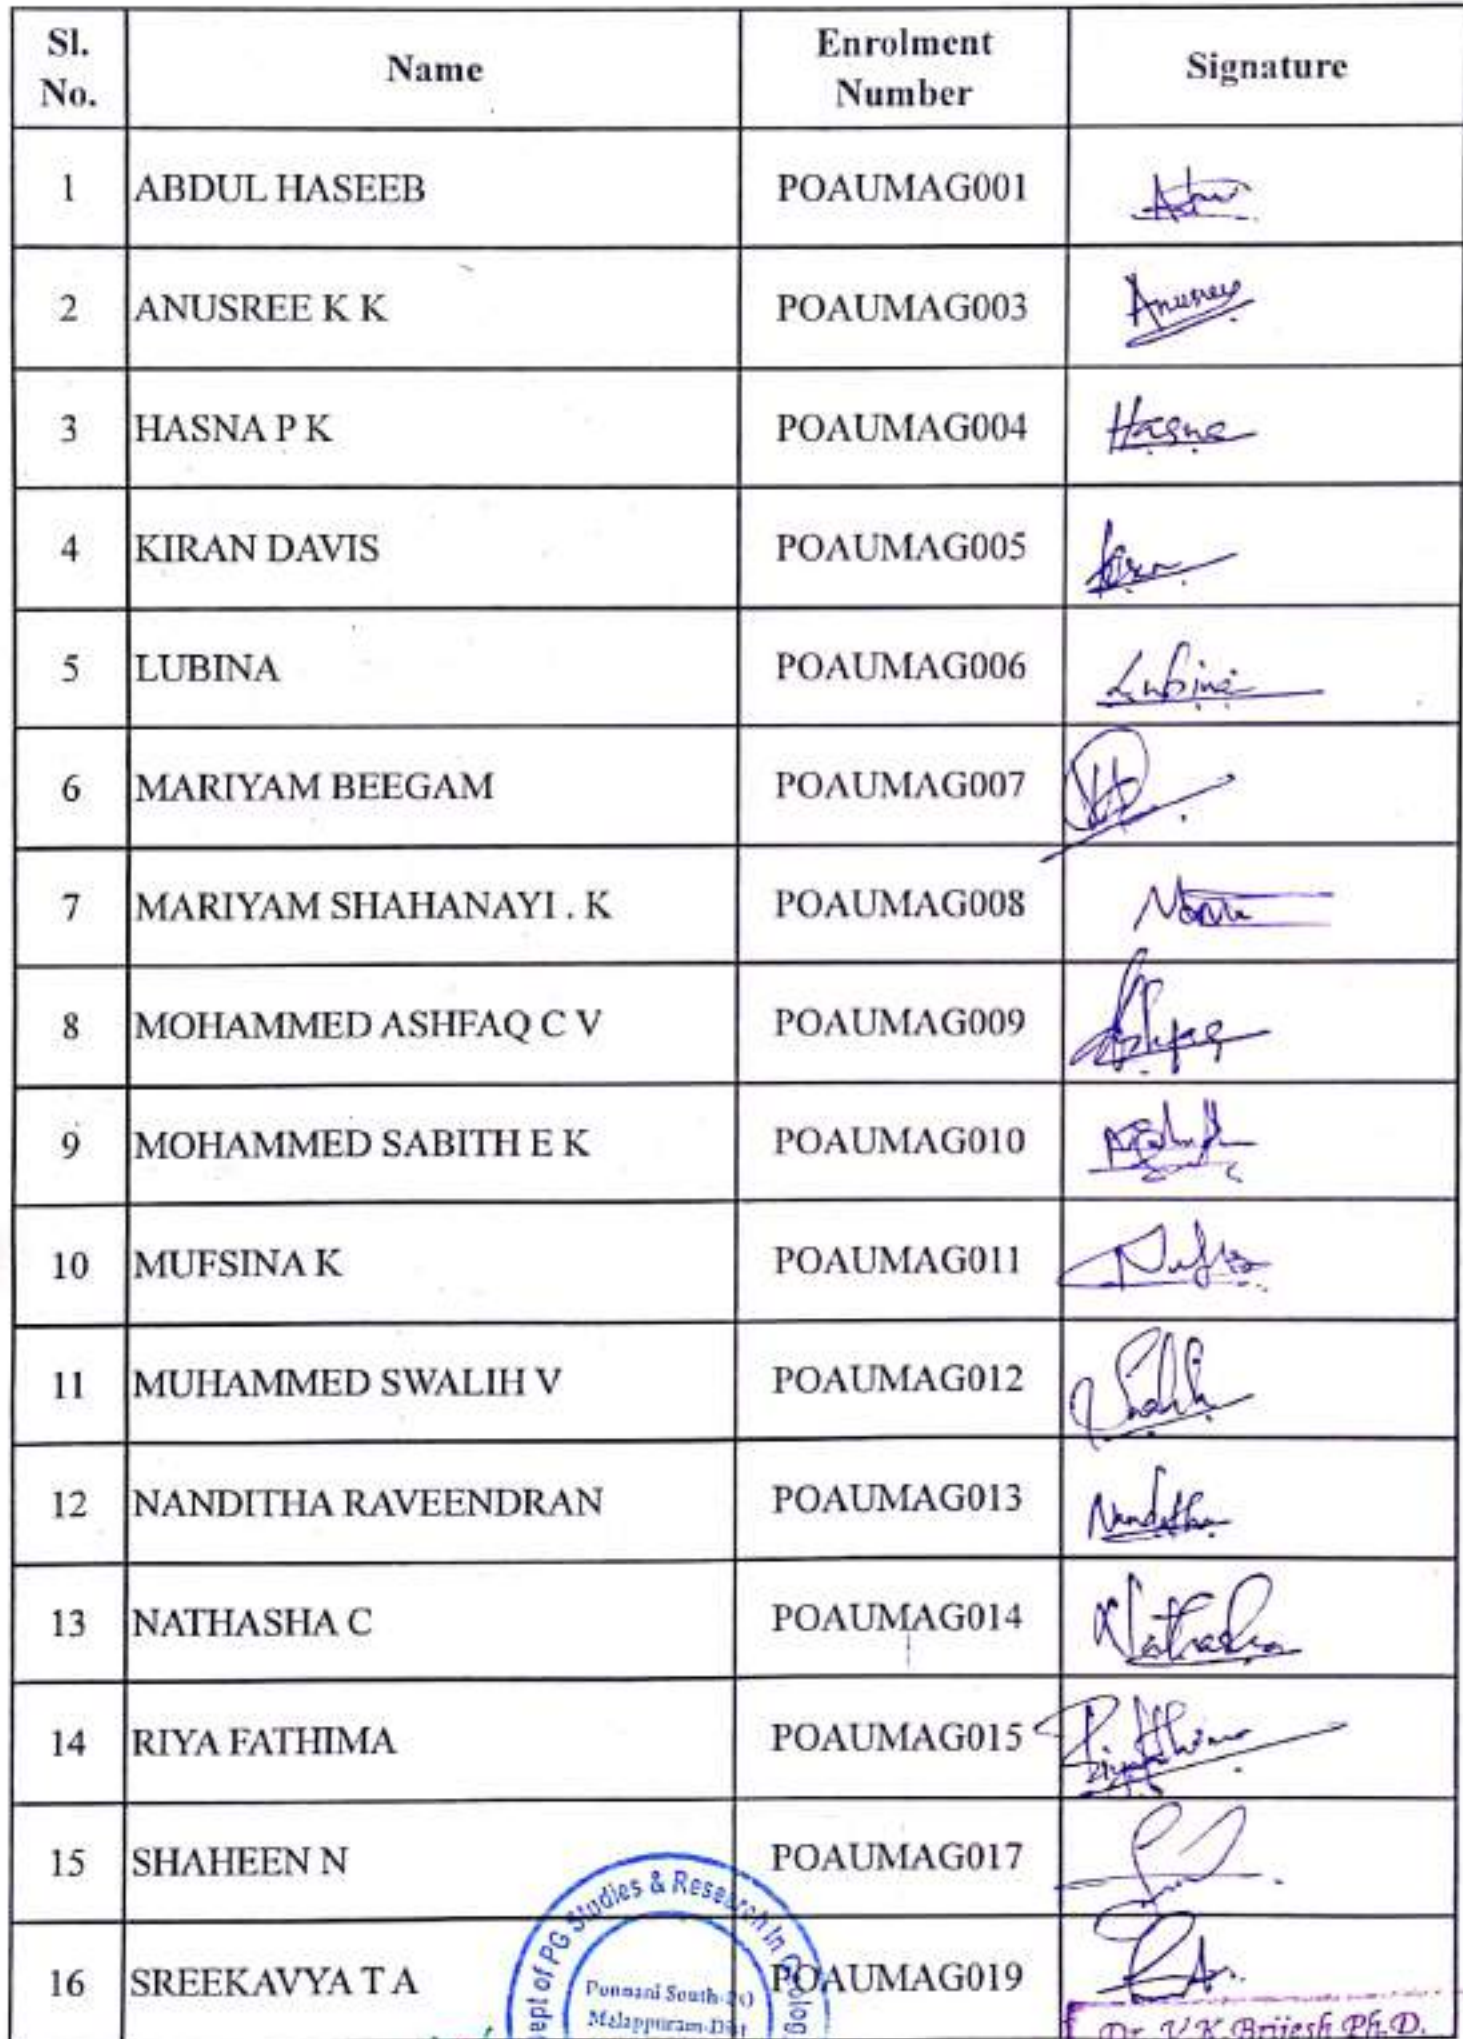 Sl. No. Name Enrolment Number Signature
1 ABDUL HASEEB POAUMAG001
2 ANUSREE K K POAUMAG003 Anusree
3 HASNA P K POAUMAG004 Hasna
4 KIRAN DAVIS POAUMAG005 Kiran
5 LUBINA POAUMAG006 Lubina
6 MARIYAM BEEGAM POAUMAG007
7 MARIYAM SHAHANAYI . K POAUMAG008
8 MOHAMMED ASHFAQ C V POAUMAG009 Ashfaq
9 MOHAMMED SABITH E K POAUMAG010
10 MUFSINA K POAUMAG011
11 MUHAMMED SWALIH V POAUMAG012
12 NANDITHA RAVEENDRAN POAUMAG013 Nanditha
13 NATHASHA C POAUMAG014 Nathasha
14 RIYA FATHIMA POAUMAG015 Riyafathima
15 SHAHEEN N POAUMAG017
16 SREEKAVYA T A POAUMAG019
Dept of PG Studies & Research in Geolog
Ponnani South-PO
Malappuram-Dist
Dr. V.K. Brijesh Ph.D.